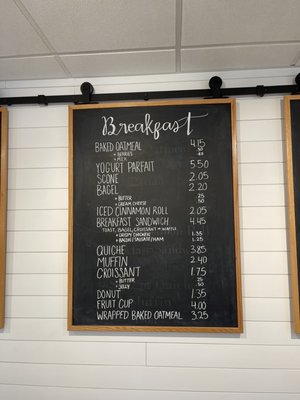 Breakfast
BAKED OATMEAL 4.15
+ BERRIES .50
+ MILK
YOGURT PARFAIT 5.50
SCONE 2.05
BAGEL 2.20
+ BUTTER .25
+ CREAM CHEESE .50
ICED CINNAMON ROLL 2.05
BREAKFAST SANDWICH 4.45
TOAST, BAGEL, CROISSANT or WAFFLE
+ CRISPY CHICKEN 1.35
+ BACON/SAUSAGE/HAM 1.25
QUICHE 3.85
MUFFIN 2.40
CROISSANT 1.75
+ BUTTER .25
+ JELLY .50
DONUT 1.35
FRUIT CUP 4.00
WRAPPED BAKED OATMEAL 3.25